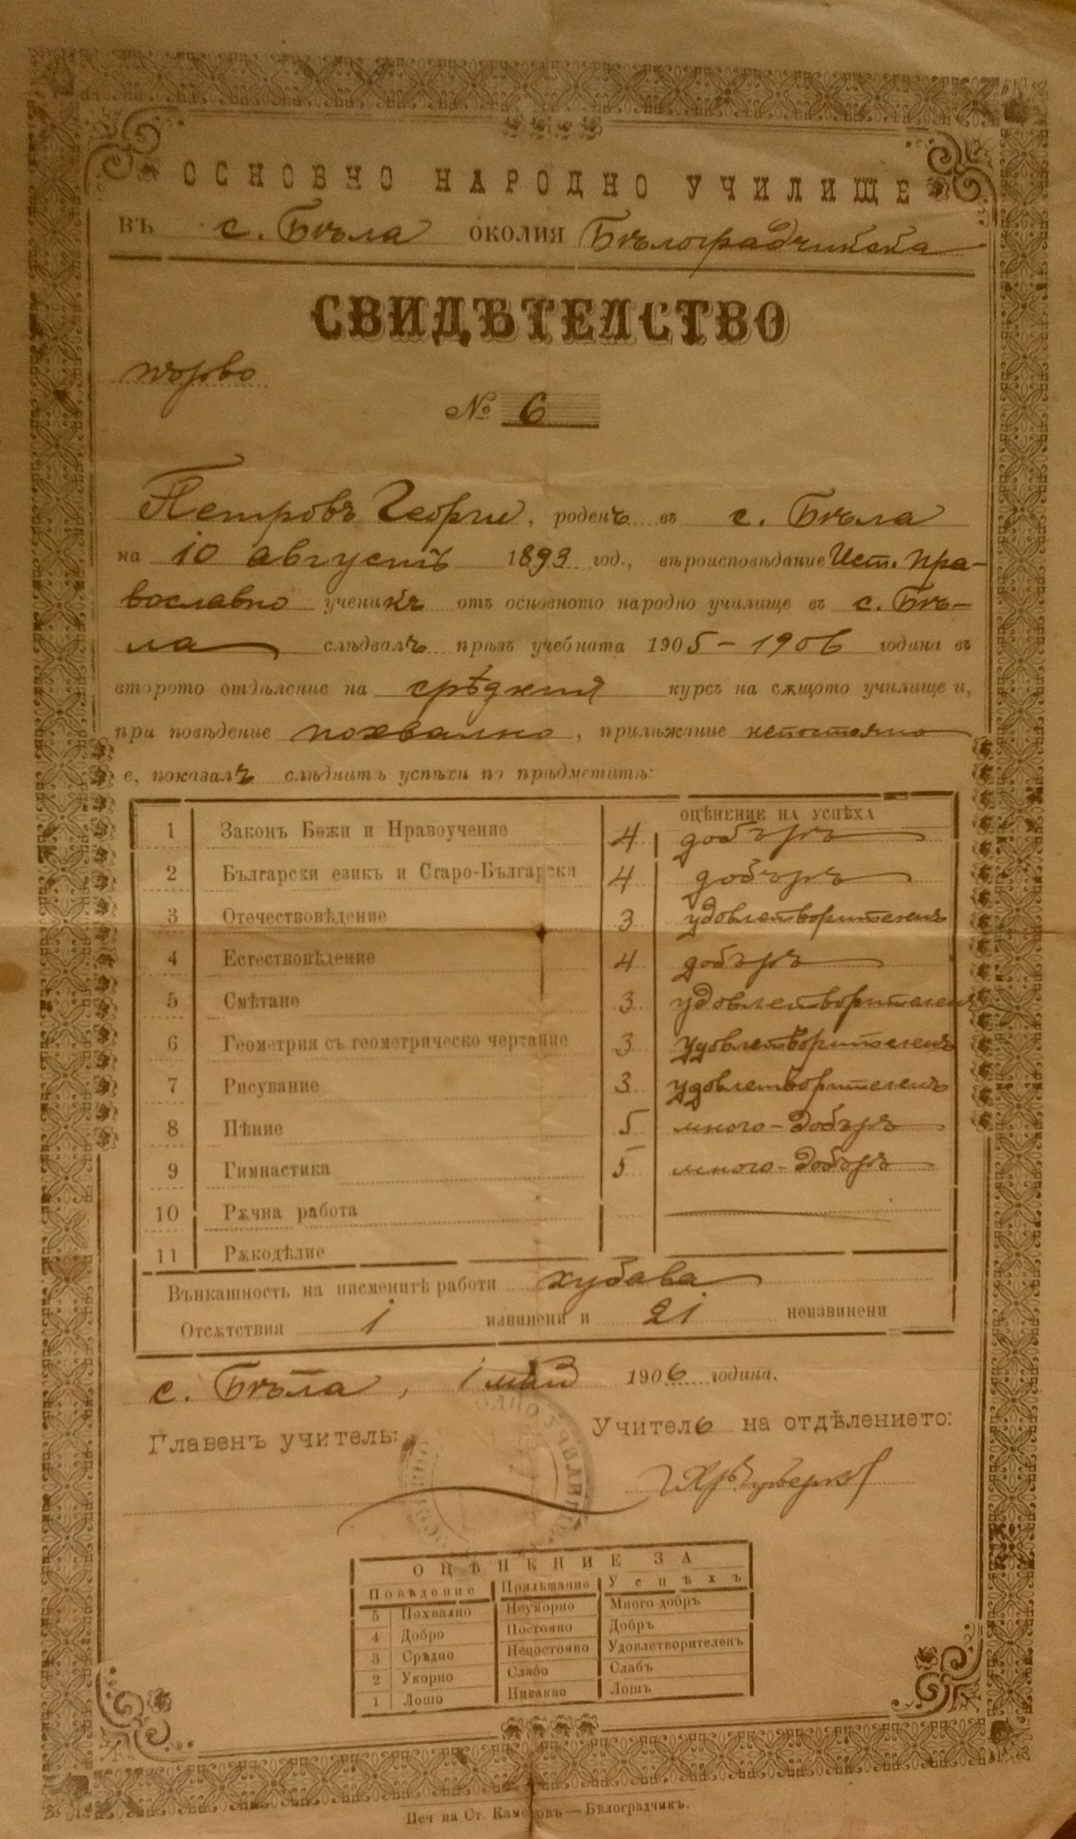 ОСНОВНО НАРОДНО УЧИЛИЩЕ
ВЪ с. Бѣла ОКОЛИЯ Бѣлоградчикска
СВИДѢТЕЛСТВО
първо
№ 6
Петровъ Георги, роденъ въ с. Бѣла
на 10 августъ 1899 год., вѣроисповѣдание Ист. пра-
вославно ученикъ отъ основното народно училище въ с. Бѣ-
ла слѣдвалъ прѣзъ учебната 1905-1906 година въ
второто отдѣление на срѣдния курсъ на сѫщото училище и,
при поведение похвално, прилѣжание непостояно
е, показалъ слѣднитѣ успѣхи по прѣдметитѣ:
ОЦѢНЕНИЕ НА УСПѢХА
1 Законъ Божи и Нравоучение 4 добъръ
2 Български езикъ и Старо-Български 4 добъръ
3 Отечествовѣдение 3 удовлетворителенъ
4 Естествовѣдение 4 добъръ
5 Смѣтане 3 удовлетворителенъ
6 Геометрия съ геометрическо чертание 3 удовлетворителенъ
7 Рисувание 3 удовлетворителенъ
8 Пѣние 5 много-добъръ
9 Гимнастика 5 много-добъръ
10 Рѫчна работа
11 Рѫкодѣлие
Вънкашность на писменитѣ работи хубава
Отсѫтствия 1 извинени и 21 неизвинени
с. Бѣла, 1 май 1906 година.
Главенъ учитель: Учитель на отдѣлението:
ОЦѢНЕНИЕ ЗА
Поведение Прилѣжание Успѣхъ
5 Похвално Неуморно Много добръ
4 Добро Постояно Добръ
3 Срѣдно Непостояно Удовлетворителенъ
2 Укорно Слабо Слабъ
1 Лошо Никакво Лошъ
Печ на Ст. Каменовъ — Бѣлоградчикъ.